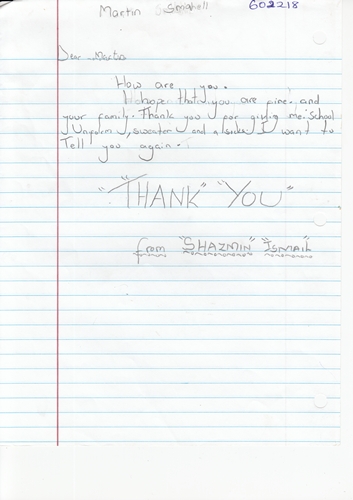 Martin Smahell 602218
Dear Martin
How are you.
I hope that you are fine. and
your family. Thank you for givig me: School
Uniform, sweater and alside I want to
Tell you again.
"THANK" "YOU"
from "SHAZMIN" "ISMAIL"